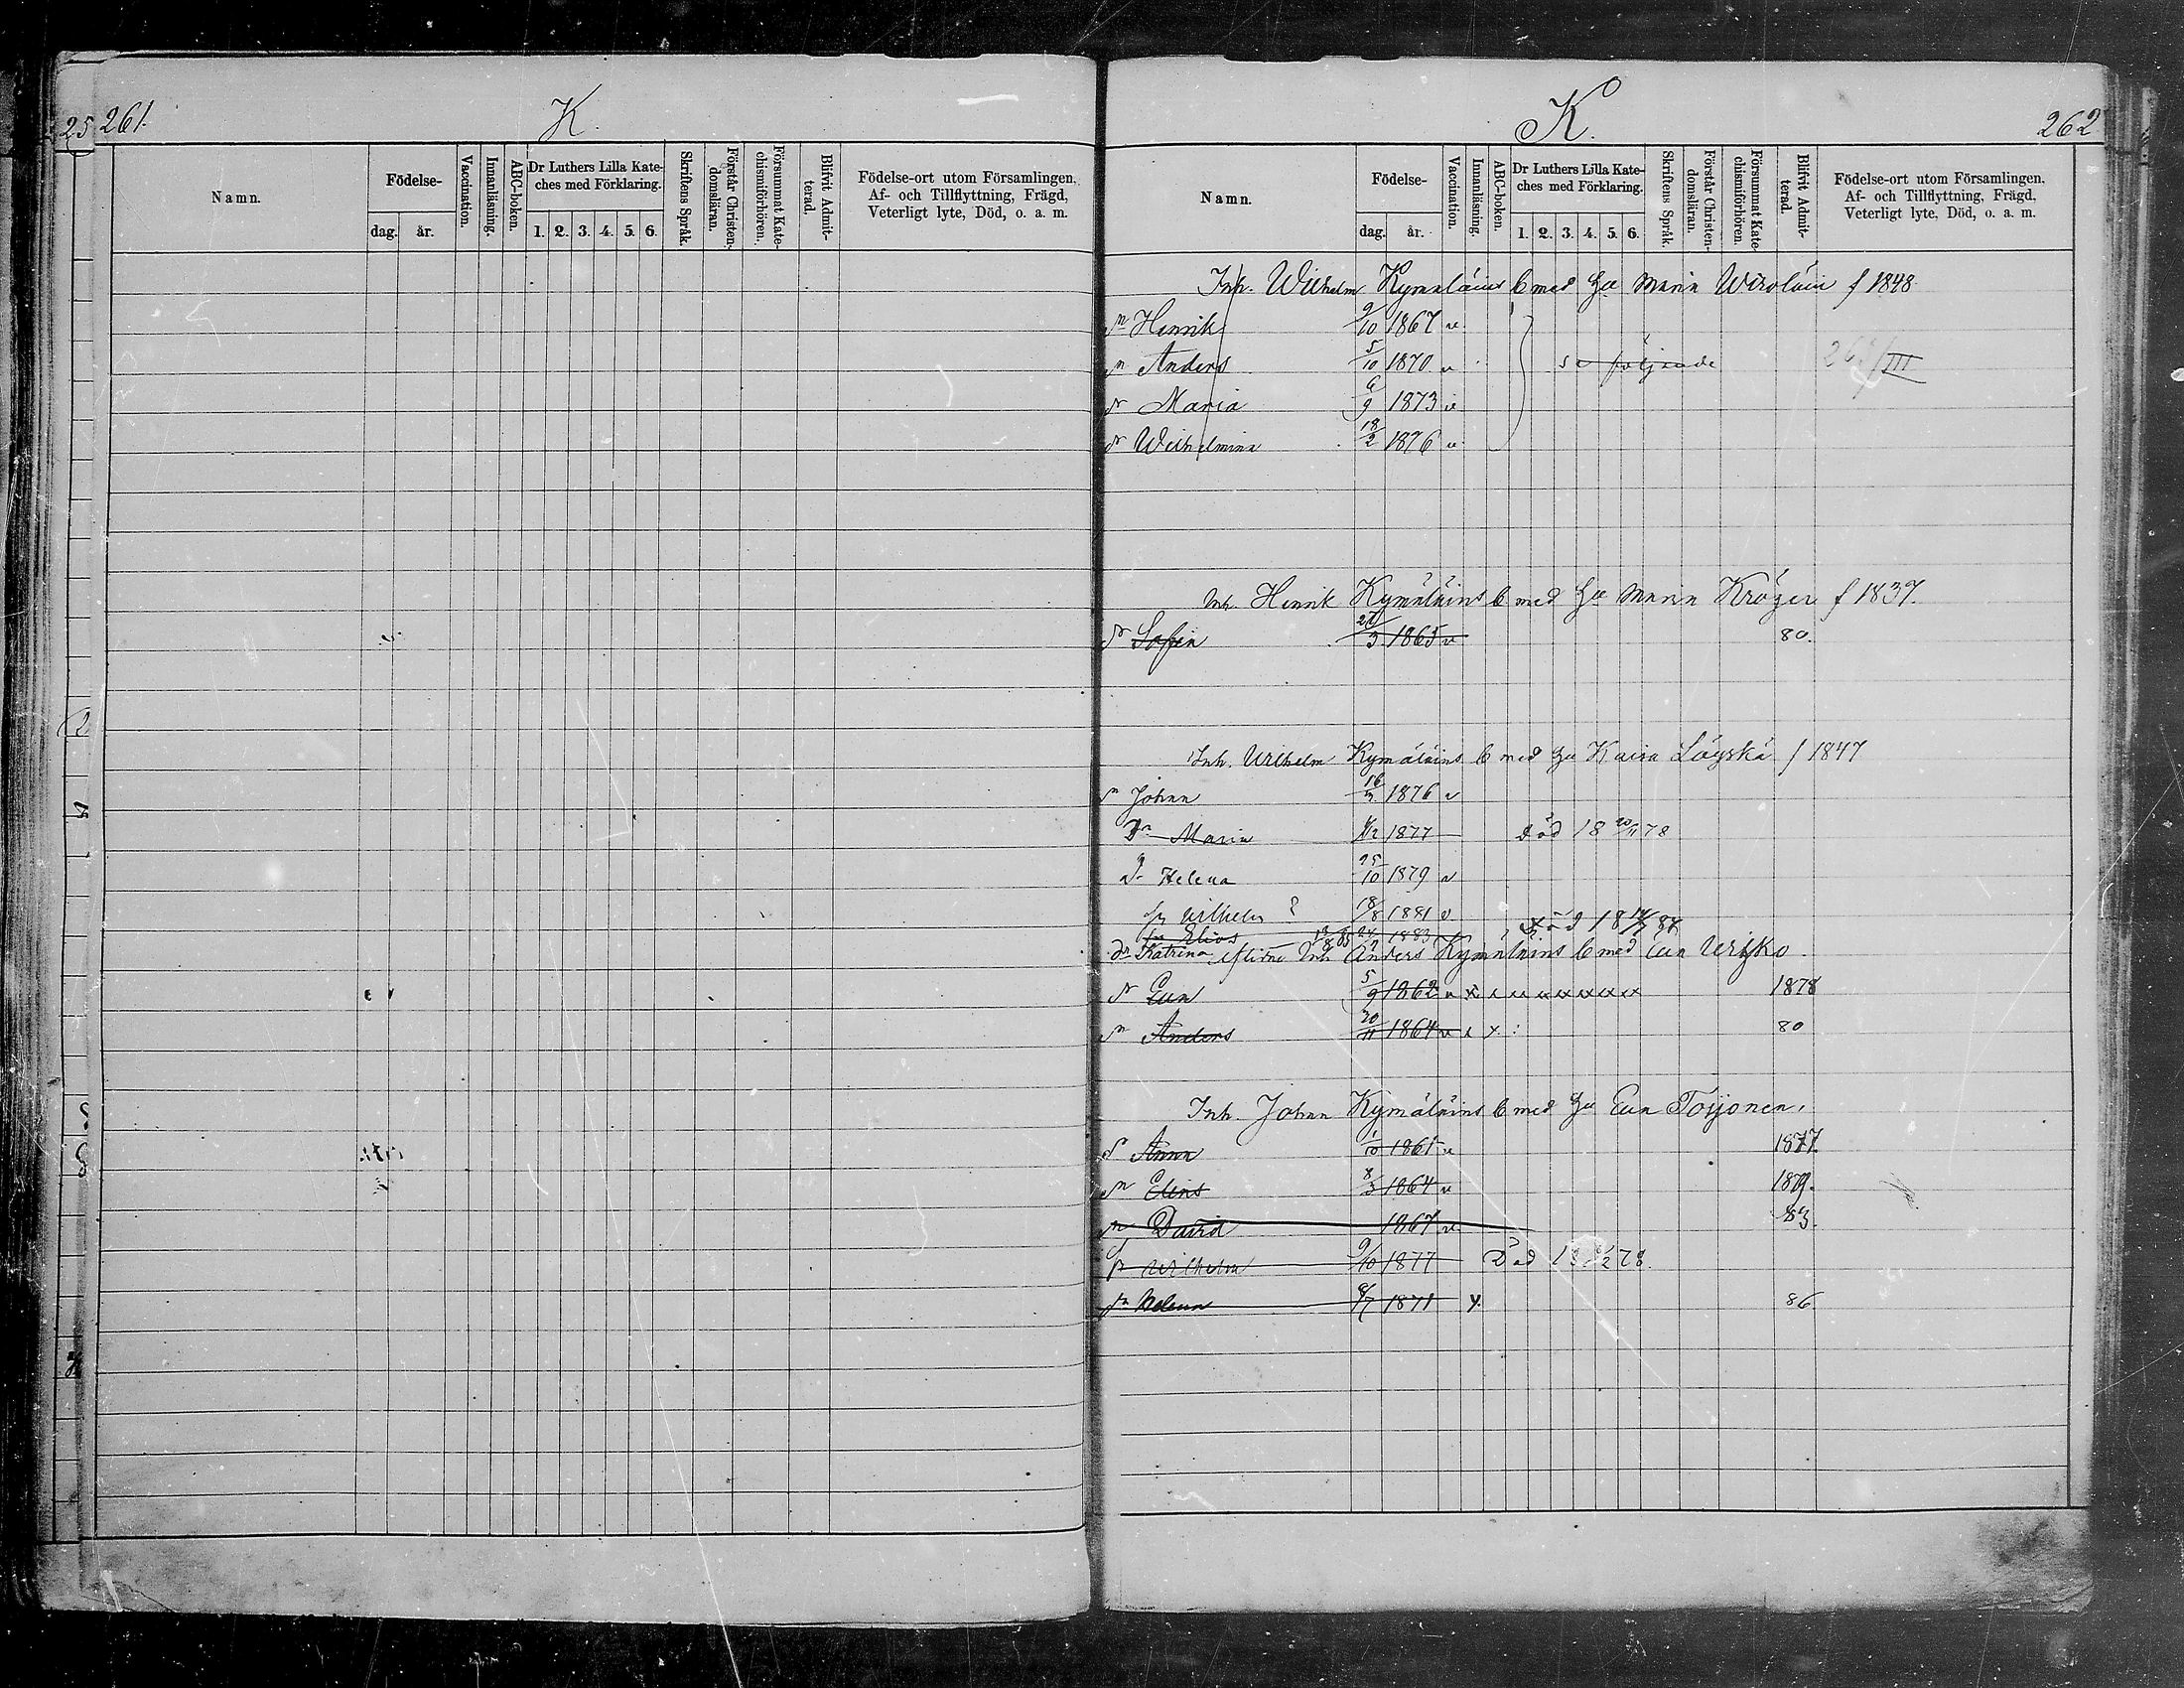 25 261.
K.
Namn.
Födelse-
dag.
år.
Vaccination.
Innanläsning.
ABC-boken.
Dr Luthers Lilla Kate-
ches med Förklaring.
1. 2. 3. 4. 5. 6.
Skriftens Språk.
Förstår Christen-
domsläran.
Försummat Kate-
chismiförhören.
Blifvit Admit-
terad.
Födelse-ort utom Församlingen,
Af- och Tillflyttning, Frägd,
Veterligt lyte, Död, o. a. m.
K.
262
Namn.
Födelse-
dag.
år.
Vaccination.
Innanläsning.
ABC-boken.
Dr Luthers Lilla Kate-
ches med Förklaring.
1. 2. 3. 4. 5. 6.
Skriftens Språk.
Förstår Christen-
domsläran.
Försummat Kate-
chismiförhören.
Blifvit Admit-
terad.
Födelse-ort utom Församlingen,
Af- och Tillflyttning, Frägd,
Veterligt lyte, Död, o. a. m.
Inh. Wilhelm Kymäläins b med Hu Maria f 1848
Henrik 9/10 1867 v
Anders 5/10 1870 v följande
Maria 6/9 1873 v
Wilhelmina 18/2 1876 v
Inh. Henrik Kymäläins b med Hu Maria Kröger f 1837.
Sofia 1865 v 80.
Inh. Wilhelm Kymäläins b med Hu Kaisa Löyskä f 1847
Johan 1876 v
Dr Maria 1877 Död 18 20/11 78
Dr Helena 25/10 1879 v
Wilhelm 18/8 1881 v
Elias 1883 Död
Dr Katrina 13/8 85
aflidne Inh Anders Kymäläins b med Eva
Eva 5/9 1862 v x x x x x x x x x 1878
Anders 20/11 1864 v x x 80
Inh. Johan Kymäläins b med Hu Eva Törjönen.
Anna 1/10 1861 v 1877
Elias 8/3 1864 v 1879.
David 1867 v 83.
Wilhelm 9/10 1877 Död
Helena 8/7 1871 x 86